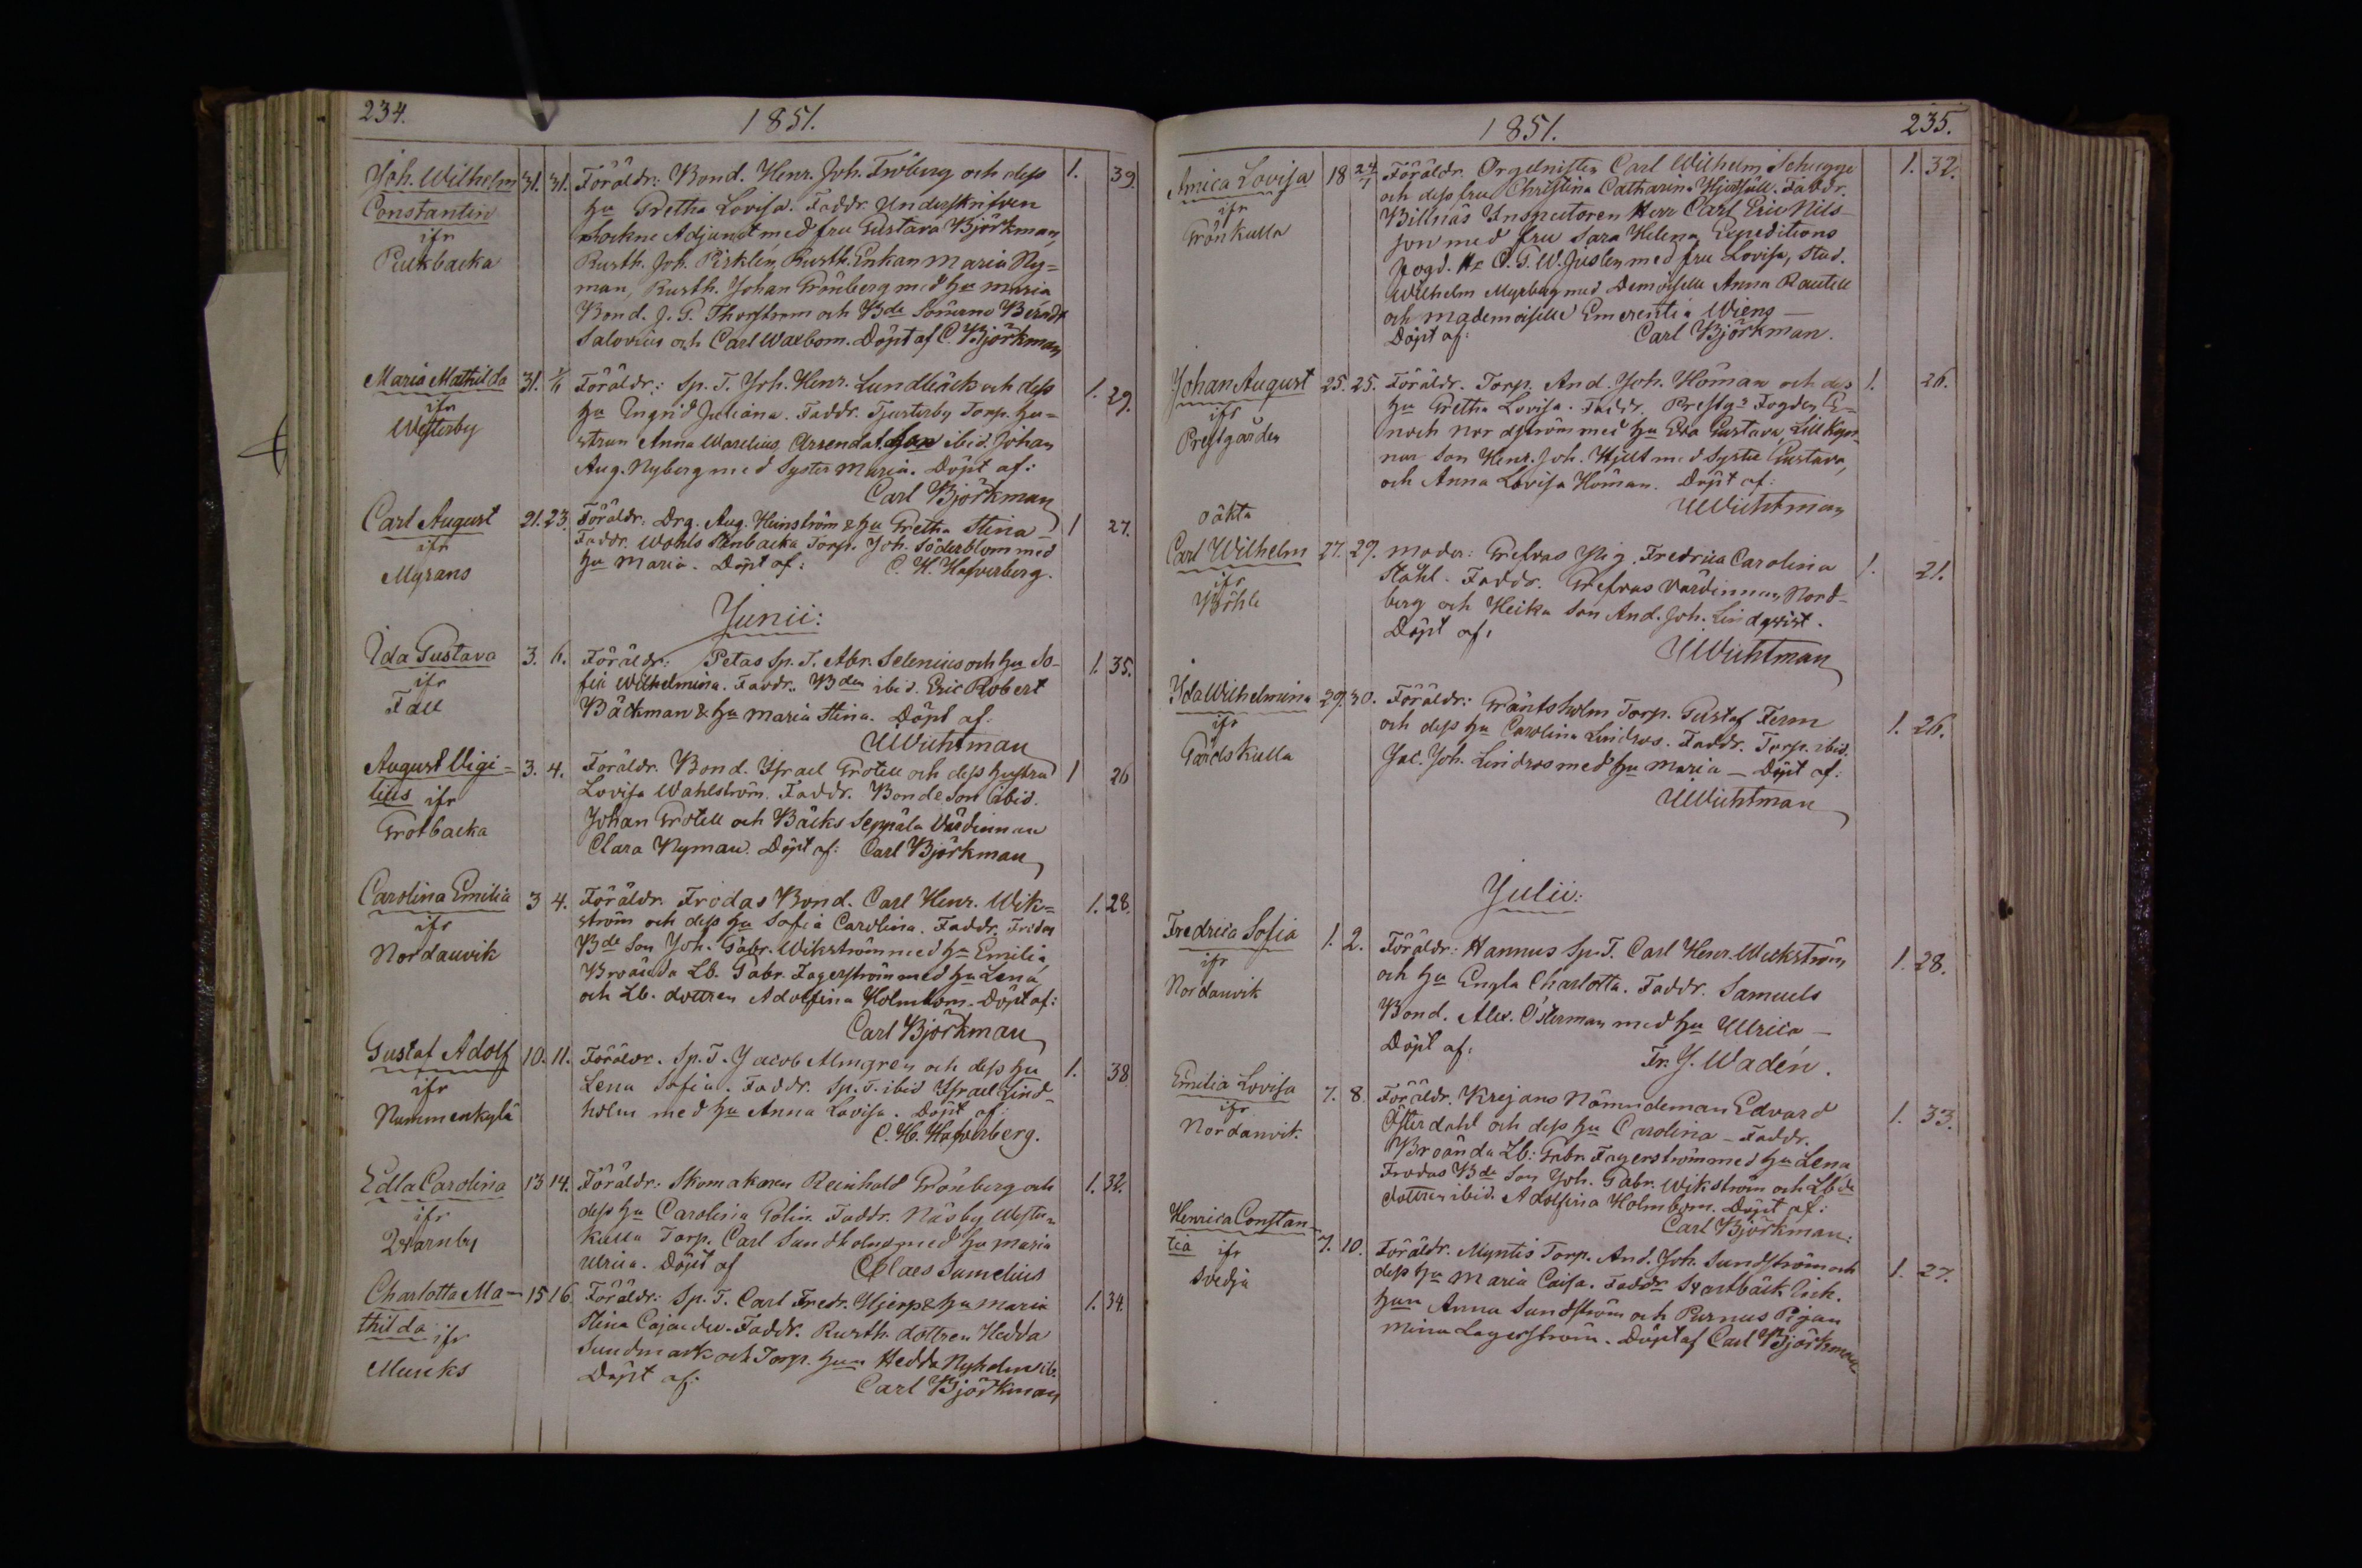 234.
1851.
Joh. Wilhelm 31. 31. Föräldr: Bond. Henr. Joh. Fröberg och dess 1. 39.
Constantin hu Gretha Lovisa. Faddr. Underskrifven
ifr Sockne Adjunct med fru Gustava Björkman,
Rusth. Joh. Rusth. Enkan Maria Ny=
man, Rusth. Johan Grönberg med hu Maria
Bond. J. G. Thorstrom och Bde Sönerne Berndt
Salovius och Carl Waxbom. Döpt af C. Björkman
Maria Mathilda 31. 1/6 Föräldr: Sp. T. Joh. Henr. Lundbäck och dess 1. 29.
ifr hu Ingrid Juliana. Faddr. Tjusterby Torp. hu=
Westerby strun Anna Warelius, Arrendat. Son ibid. Johan
Aug. Nyberg med Syster Maria. Döpt af:
Carl Björkman
Carl August 21. 23. Föräldr. Drg. Aug. Heinström & hu Gretha Stina — 1 27.
ifr Faddr. Wohls Stenbacka Torp. Joh. Söderblom med
Myrans hu Maria. Döpt af: C. H. Hafverberg.
Junii:
Ida Gustava 3. 6. Föräldr: Petas Sp. T. Abr. Selenius och hu So- 1. 35.
ifr fia Wilhelmina. Faddr. Bden ibid. Eric Robert
Fall Bäckman & hu Maria Stina. Döpt af.
UWichtman
August Vigi- 3. 4. Föräldr. Bond. Israel Grotell och dess hustru 1 26
lius ifr Lovisa Wahlström. Faddr. Bonde Son ibid.
Grotbacka Johan Grotell och Bäcks Seppäla Värdinnan
Clara Nyman. Döpt af: Carl Björkman
Carolina Emilia 3 4. Föräldr. Frodas Bond. Carl Henr. Wik= 1. 28.
ifr ström och dess hu Sofia Carolina. Faddr. Frodas
Nordanvik Bde Son Joh. Gabr. Wikström med hu Emilia
Broända Lb. Gabr. Fagerström med hu Lena,
och Lb. dottren Adolfina Holmbom. Döpt af:
Carl Björkman
Gustaf Adolf 10. 11. Föräldr. Sp. T. Jacob Almgren och dess hu 1. 38
ifr Lena Sofia. Faddr. Sp. T. ibid Israel Lind-
Nummenkylä holm med hu Anna Lovisa. Döpt af:
C. H. Hafverberg.
Edla Carolina 13 14. Föräldr: Skomakaren Reinhold Grönberg och 1. 32.
ifr dess hu Carolina Polin. Faddr. Näsby Wester=
Qvarnby kulla Torp. Carl Sundholm med hu Maria
Ulrica. Döpt af Claes Sumelius
Charlotta Ma- 15 16. Föräldr: Sp. T. Carl Fredr. Hjerp & hu Maria 1. 34.
thilda ifr Stina Cajander. Faddr. Rusth. dottren Hedda
Muncks Sundmark och Torp. hun Hedda Nyholm ib.
Döpt af: Carl Björkman
1851.
235.
Amica Lovisa 18 24/7 Föräldr. Orgelnisten Carl Wilhelm Schugge 1. 32.
ifr och dess fru Christina Catharina Faddr.
Grönkulla Billnäs Inspectoren Herr Carl Eric Nils-
son med fru Sara Helena, Expeditions
Fogd. Hr C. G. W. Juslen med fru Lovisa, Stud.
Wilhelm Myrberg med Demoiselle Anna Rautell
och Mademoiselle Emerentia Wieng —
Döpt af: Carl Björkman.
Johan August 25. 25. Föräldr. Torp. And. Joh. Höman och dess 1. 26.
ifr hu Gretha Lovisa. Faddr. Prestgs Fogden E=
Prestgården noch Nordström med hu Eva Gustava, Lill
nur Son Henr. Joh. Hjelt med Syster Gustava,
och Anna Lovisa Höman. Döpt af:
UWichtman
oäkta
Carl Wilhelm 27. 29. Moder: Grefvas Pig. Fredrica Carolina 1. 21.
ifr Ståhl. Faddr. Grefvas Värdinnan Nord-
Böhle berg och Heika Son And. Joh. Lindqvist.
Döpt af:
UWichtman
Ida Wilhelmina 29. 30. Föräldr: Gräntsholm Torp. Gustaf Ferm 1. 26.
ifr och dess hu Carolina Lindros. Faddr. Torp. ibid.
Gårdskulla Jac. Joh. Lindros med hu Maria — Döpt af:
UWichtman
Julii:
Fredrica Sofia 1. 2. Föräldr: Hannus Sp. T. Carl Henr. Weckström 1. 28.
ifr och hu Engla Charlotta. Faddr. Samuels
Nordanvik Bond. Alex. Österman med hu Ulrica —
Döpt af: Fr. J. Wadén.
Emilia Lovisa 7. 8. Föräldr. Krejans Nämndeman Edvard 1. 33.
ifr Österdahl och dess hu Carolina — Faddr.
Nordanvik. Broända Lb: Gabr. Fagerström med hu Lena,
Frodas Bde Son Joh. Gabr. Wikström och Lbde
dottren ibid. Adolfina Holmbom. Döpt af:
Carl Björkman:
Henrica Constan- 7. 10. Föräldr. Myntis Torp. And. Joh. Sundström och 1. 27.
tia ifr dess hu Maria Caisa. Faddr Svartbäck Enk.
Svedja hun Anna Sundström och Purnus Pigan
Mina Lagerström. Döpt af Carl Björkman